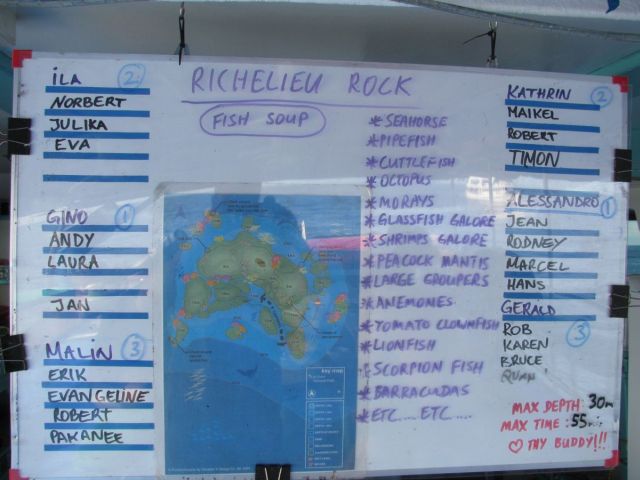 RICHELIEU ROCK
FISH SOUP
ILA 2
NORBERT
JULIKA
EVA
GINO 1
ANDY
LAURA
JAN
MALIN 3
ERIK
EVANGELINE
ROBERT
PAKANEE
* SEAHORSE
* PIPEFISH
* CUTTLEFISH
* OCTOPUS
* MORAYS
* GLASSFISH GALORE
* SHRIMPS GALORE
* PEACOCK MANTIS
* LARGE GROUPERS
* ANEMONES
* TOMATO CLOWNFISH
* LIONFISH
* SCORPION FISH
* BARRACUDAS
* ETC.... ETC.....
KATHRIN 2
MAIKEL
ROBERT
TIMON
ALESSANDRO 1
JEAN
RODNEY
MARCEL
HANS
GERALD
ROB 3
KAREN
BRUCE
MAX DEPTH: 30m
MAX TIME: 55
♡ THY BUDDY!!!
key map